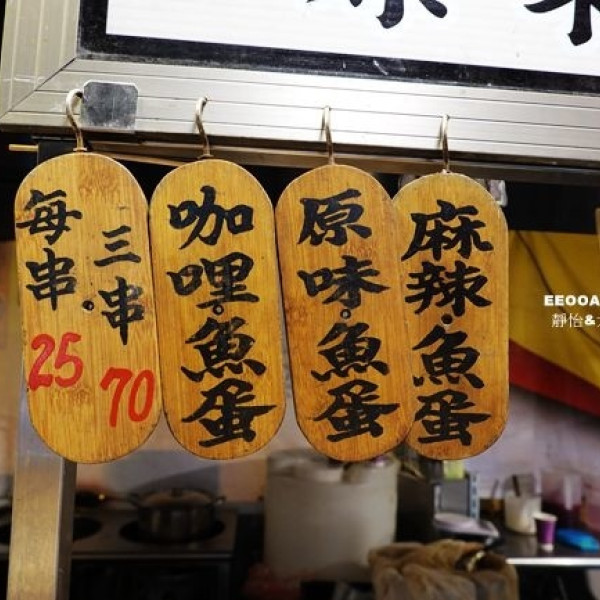 每串
25
三串
70
咖哩·魚蛋
原味·魚蛋
麻辣·魚蛋
EEOOA
靜怡&